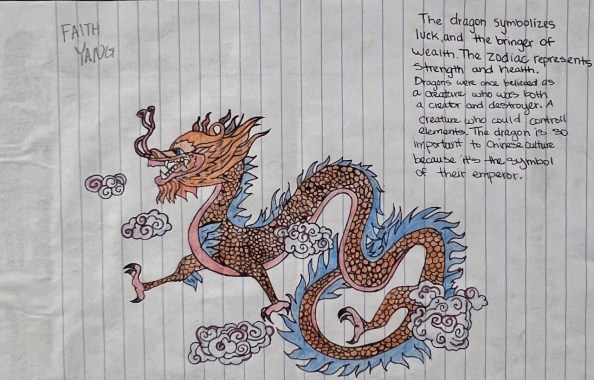 FAITH
YANG
The dragon symbolizes
luck, and the bringer of
wealth. The Zodiac represents
strength and health.
Dragons were once believed as
a creature who was both
a creator and destroyer. A
creature who could controll
elements. The dragon is so
important to Chinese culture
because it's the symbol
of their emperor.